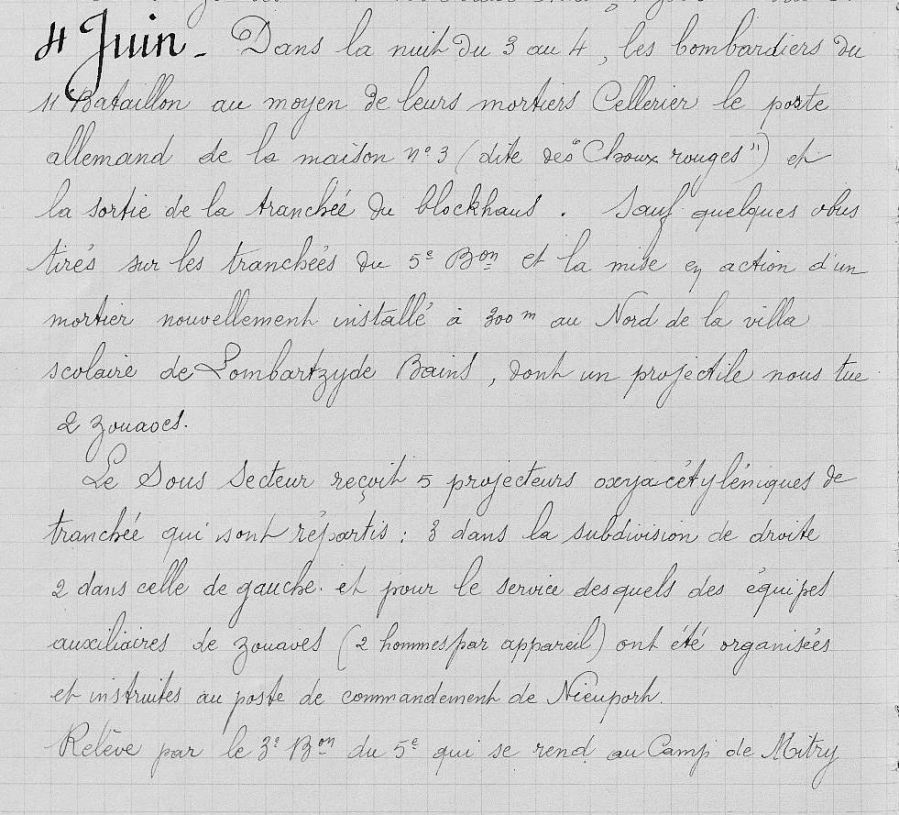 4 Juin - Dans la nuit du 3 au 4, les bombardiers du
11 Bataillon au moyen de leurs mortiers Cellerier le poste
allemand de la maison nº 3 (dite des "Choux rouges") et
la sortie de la tranchée du blockhaus. Sauf quelques obus
tirés sur les tranchées du 5e Bon et la mise en action d'un
mortier nouvellement installé à 300 m au Nord de la villa
scolaire de Lombartzyde Bains, dont un projectile nous tue
2 zouaves.
Le Sous Secteur reçoit 5 projecteurs oxyacétyléniques de
tranchée qui sont répartis : 3 dans la subdivision de droite
2 dans celle de gauche. et pour le service desquels des équipes
auxiliaires de zouaves (2 hommes par appareil) ont été organisées
et instruites au poste de commandement de Nieuport.
Relève par le 3e Bon du 5e qui se rend au Camp de Mitry